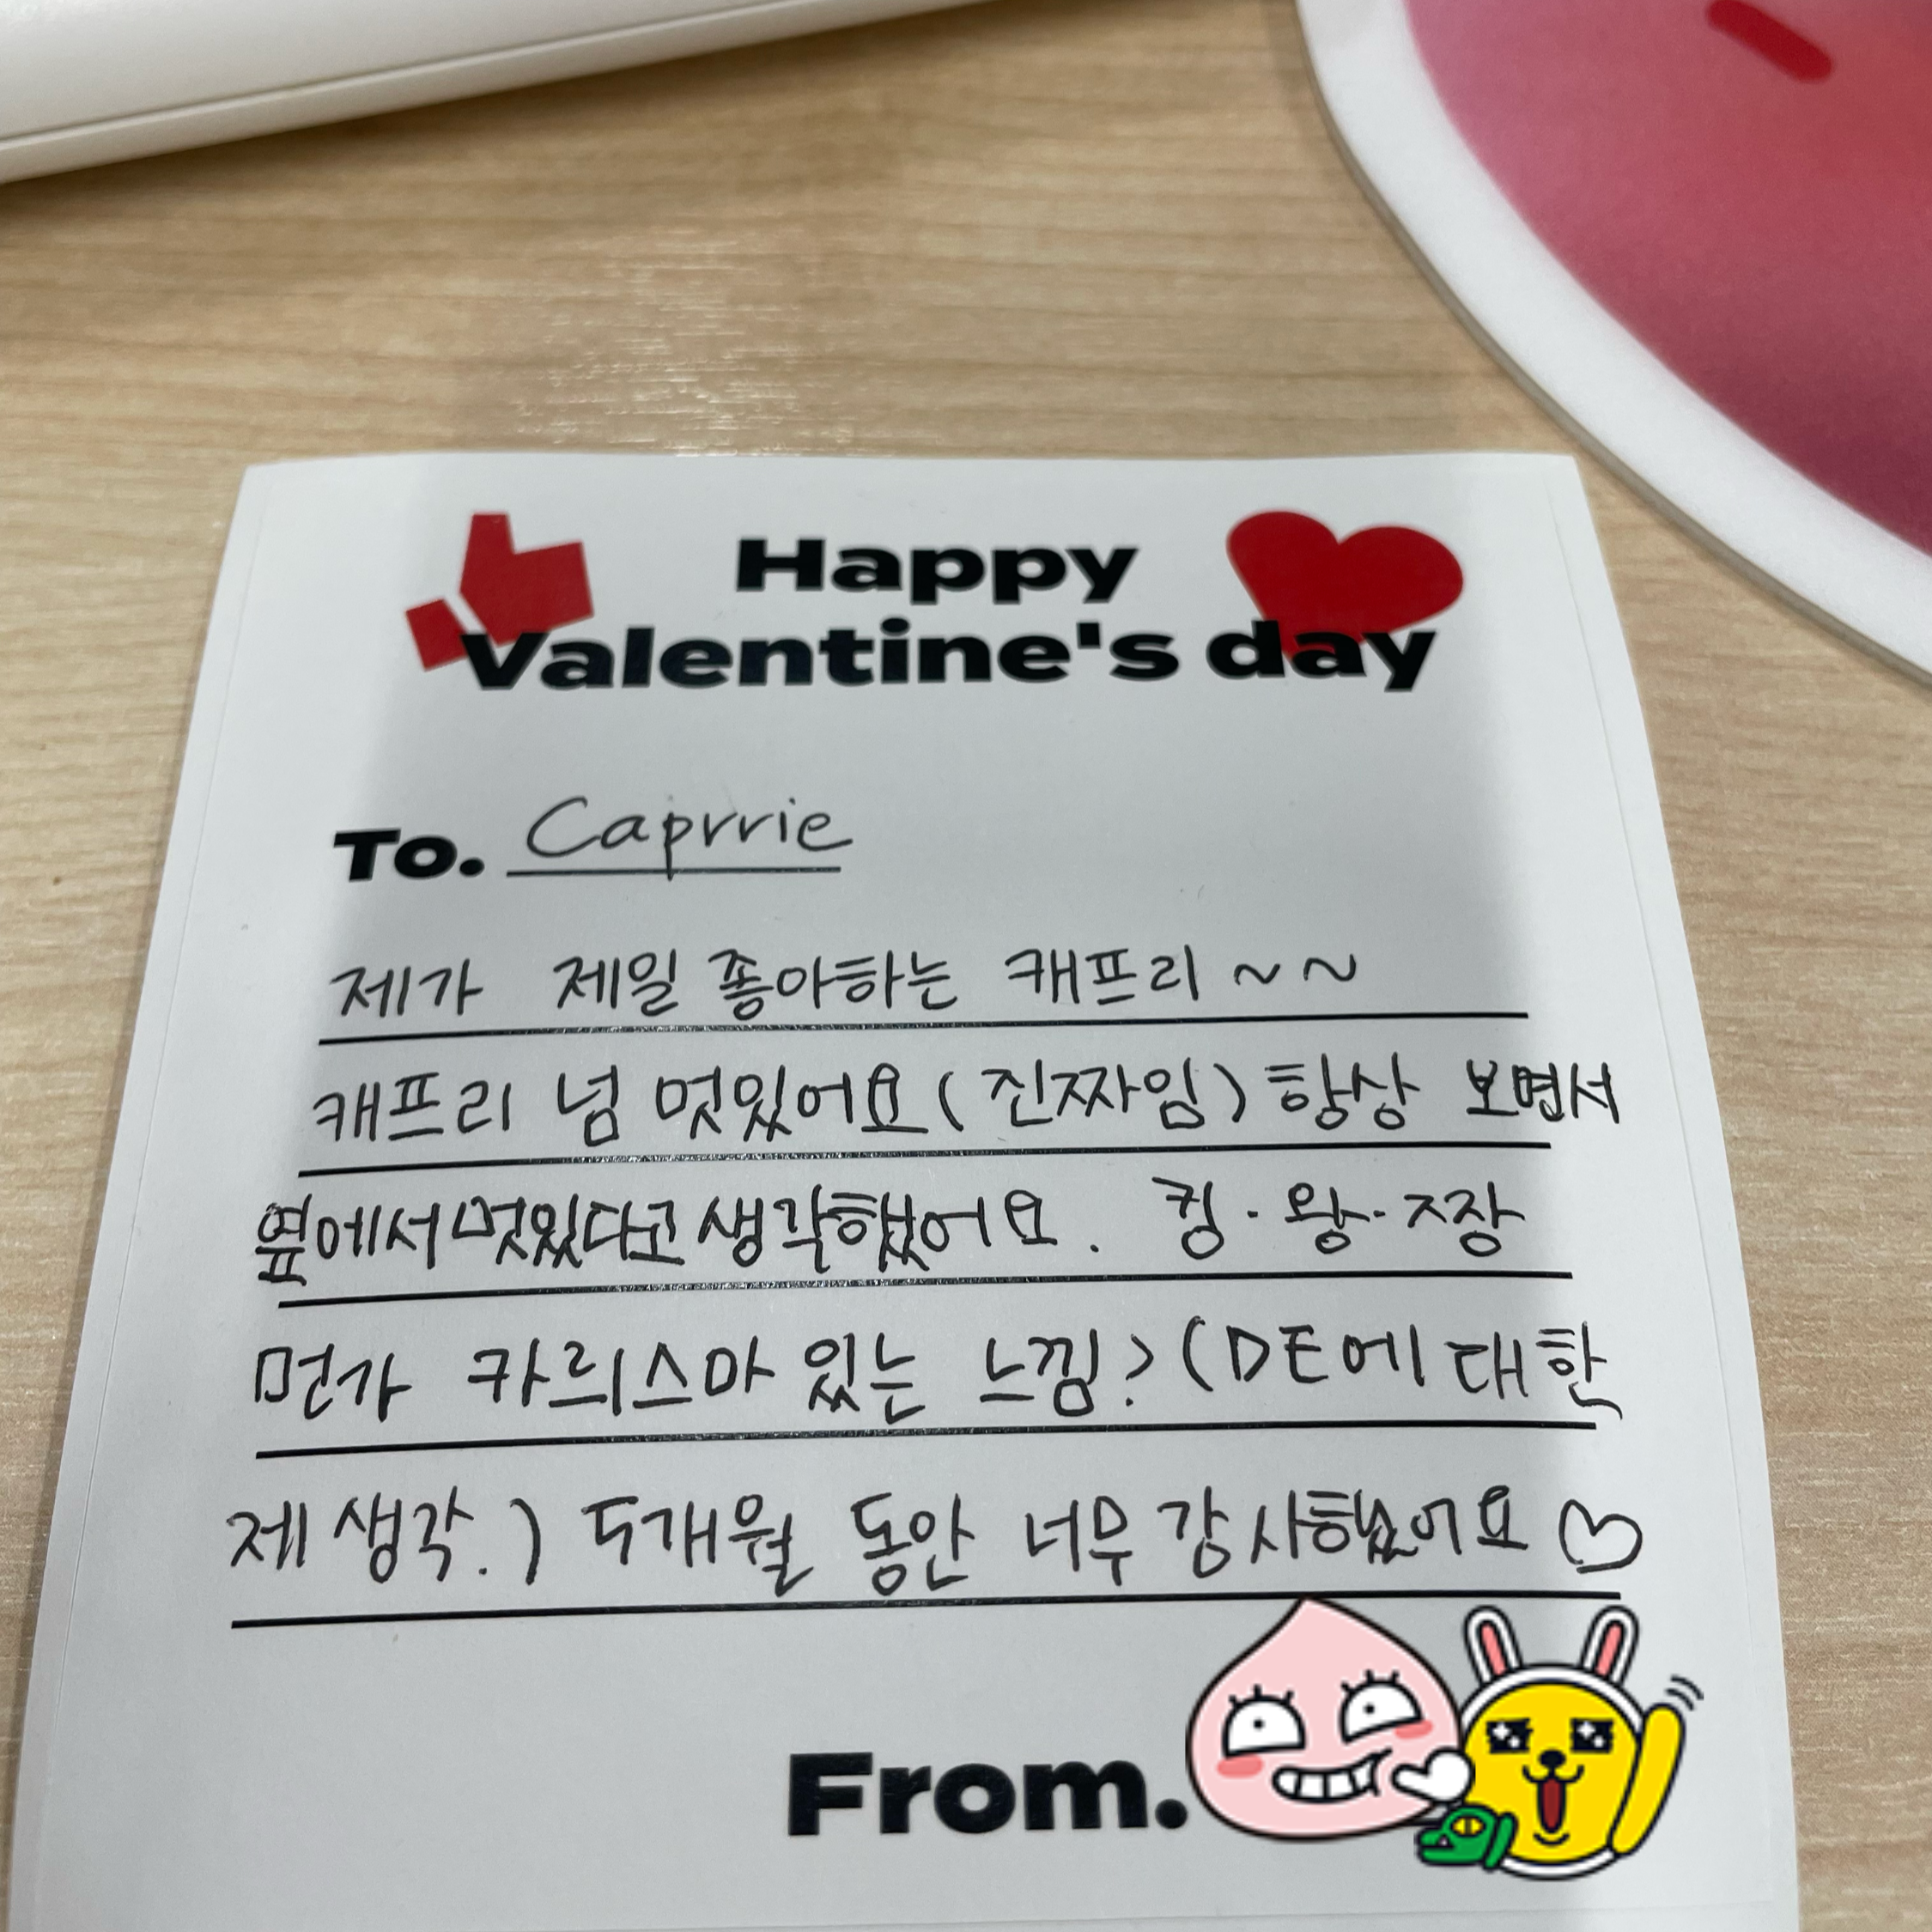 Happy
Valentine's day
To. Caprrie
제가 제일 좋아하는 캐프리 ~~
캐프리 넘 멋있어요 (진짜임) 항상 보면서
옆에서 멋있다고 생각했어요. 킹·왕·짱
먼가 카리스마 있는 느낌? (DE에 대한
제 생각.) 5개월 동안 너무 감사했어요♡
From.